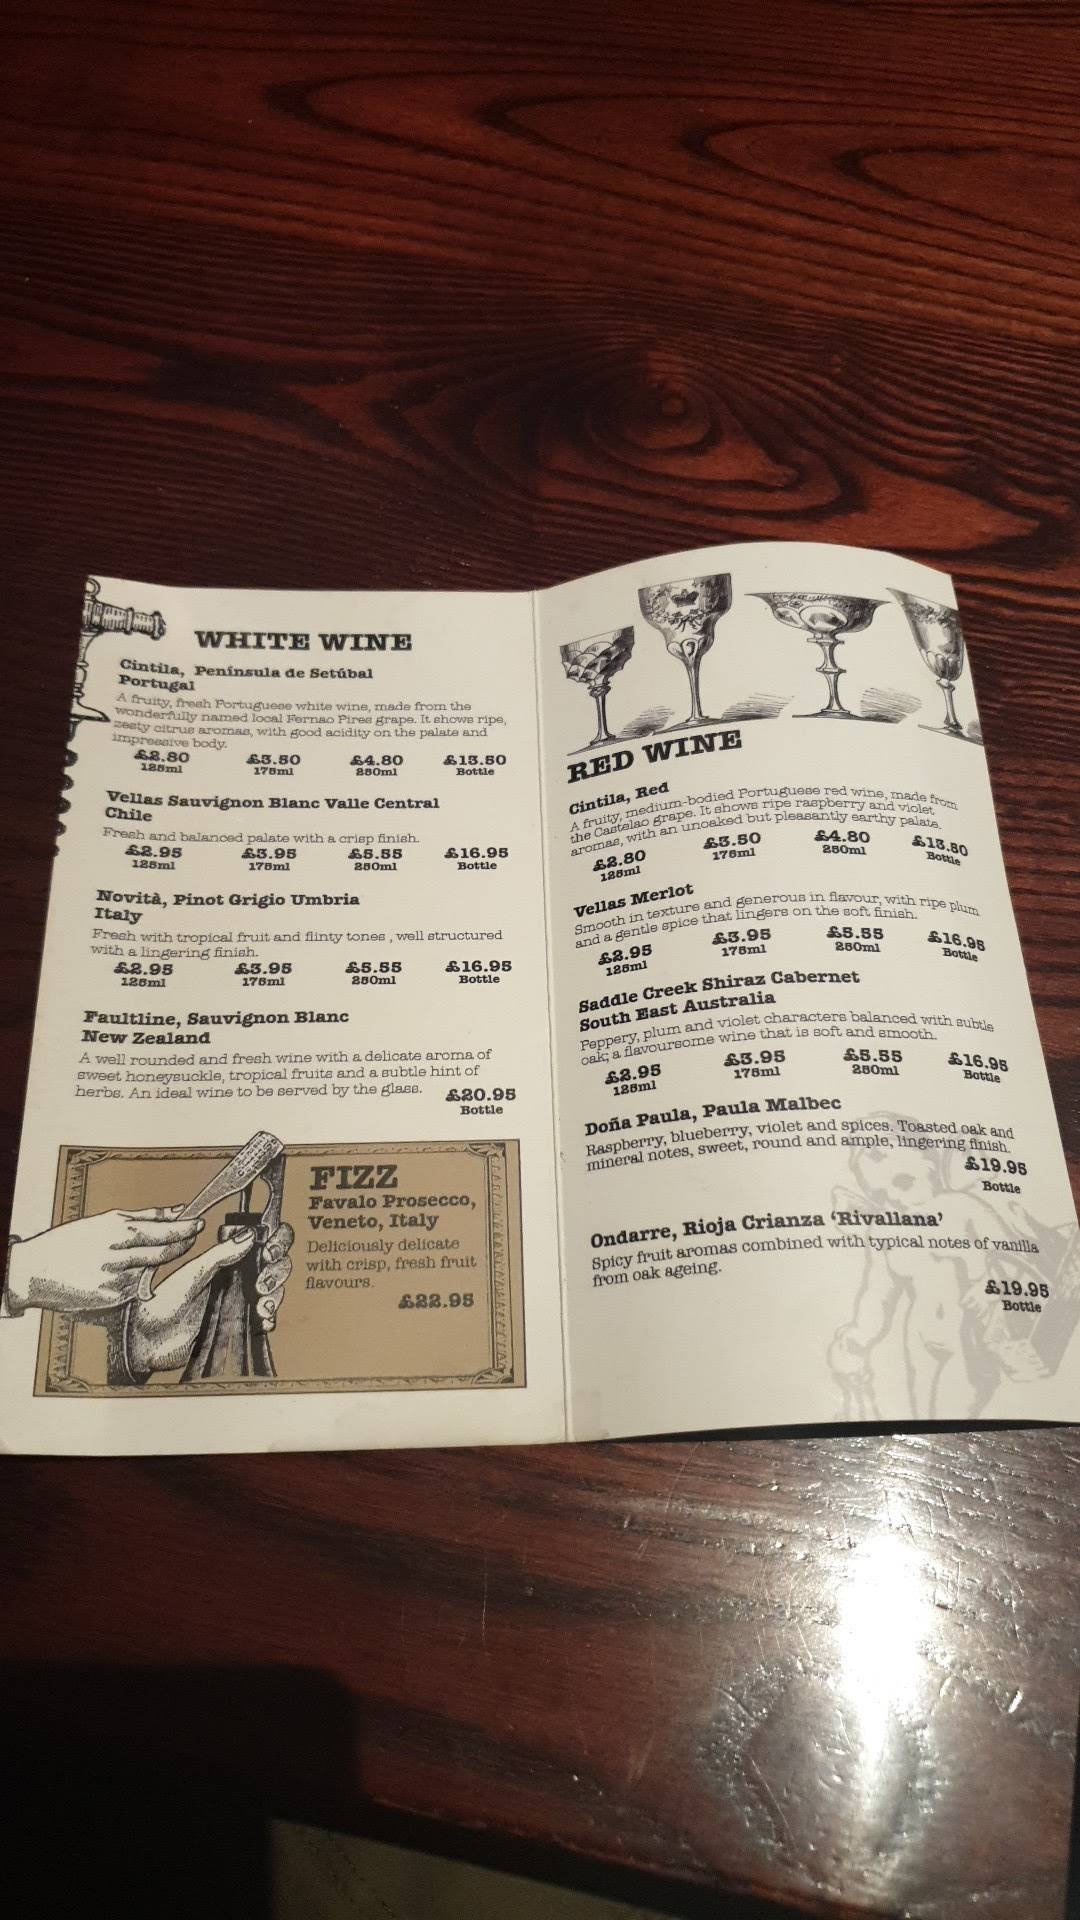 WHITE WINE
Cintila, Península de Setúbal
Portugal
A fruity, fresh Portuguese white wine, made from the
wonderfully named local Fernao Pires grape. It shows ripe,
zesty citrus aromas, with good acidity on the palate and
impressive body.
£2.80 £3.50 £4.80 £13.50
125ml 175ml 250ml Bottle
Vellas Sauvignon Blanc Valle Central
Chile
Fresh and balanced palate with a crisp finish.
£2.95 £3.95 £5.55 £16.95
125ml 175ml 250ml Bottle
Novità, Pinot Grigio Umbria
Italy
Fresh with tropical fruit and flinty tones , well structured
with a lingering finish.
£2.95 £3.95 £5.55 £16.95
125ml 175ml 250ml Bottle
Faultline, Sauvignon Blanc
New Zealand
A well rounded and fresh wine with a delicate aroma of
sweet honeysuckle, tropical fruits and a subtle hint of
herbs. An ideal wine to be served by the glass. £20.95
Bottle
FIZZ
Favalo Prosecco,
Veneto, Italy
Deliciously delicate
with crisp, fresh fruit
flavours.
£22.95
RED WINE
Cintila, Red
A fruity, medium-bodied Portuguese red wine, made from
the Castelao grape. It shows ripe raspberry and violet
aromas, with an unoaked but pleasantly earthy palate.
£2.80 £3.50 £4.80 £13.50
125ml 175ml 250ml Bottle
Vellas Merlot
Smooth in texture and generous in flavour, with ripe plum
and a gentle spice that lingers on the soft finish.
£2.95 £3.95 £5.55 £16.95
125ml 175ml 250ml Bottle
Saddle Creek Shiraz Cabernet
South East Australia
Peppery, plum and violet characters balanced with subtle
oak; a flavoursome wine that is soft and smooth.
£2.95 £3.95 £5.55 £16.95
125ml 175ml 250ml Bottle
Doña Paula, Paula Malbec
Raspberry, blueberry, violet and spices. Toasted oak and
mineral notes, sweet, round and ample, lingering finish.
£19.95
Bottle
Ondarre, Rioja Crianza ‘Rivallana’
Spicy fruit aromas combined with typical notes of vanilla
from oak ageing.
£19.95
Bottle